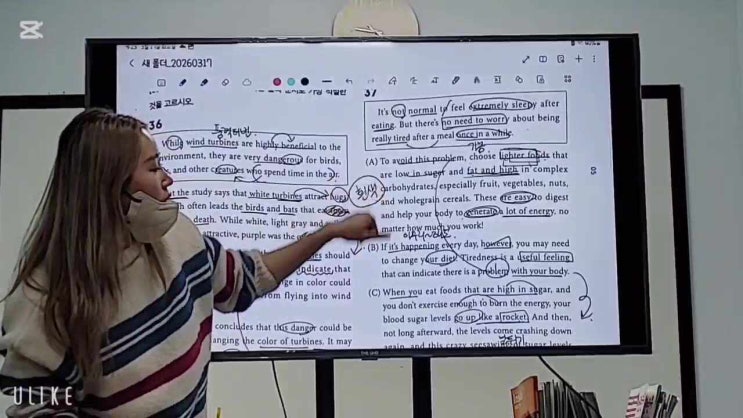 새 폴더_20260317
것을 고르시오.
36
풍력터빈
While wind turbines are highly beneficial to the
environment, they are very dangerous for birds,
and other creatures who spend time in the air.
the study says that white turbines attract bugs,
often leads the birds and bats that eat
death. While white, light gray and
attractive, purple was the
should
indicate that
change in color could
from flying into wind
concludes that this danger could be
changing the color of turbines. It may
흰색
37
It's not normal to feel extremely sleepy after
eating. But there's no need to worry about being
really tired after a meal once in a while.
가벼
(A) To avoid this problem, choose lighter foods that
are low in sugar and fat and high in complex
carbohydrates, especially fruit, vegetables, nuts,
and wholegrain cereals. These are easy to digest
and help your body to generate a lot of energy, no
matter how much you work!
(B) If it's happening every day, however, you may need
to change your diet. Tiredness is a useful feeling
that can indicate there is a problem with your body.
(C) When you eat foods that are high in sugar, and
you don't exercise enough to burn the energy, your
blood sugar levels go up like a rocket. And then,
not long afterward, the levels come crashing down
again, and this crazy seesawing of sugar levels
ULIKE